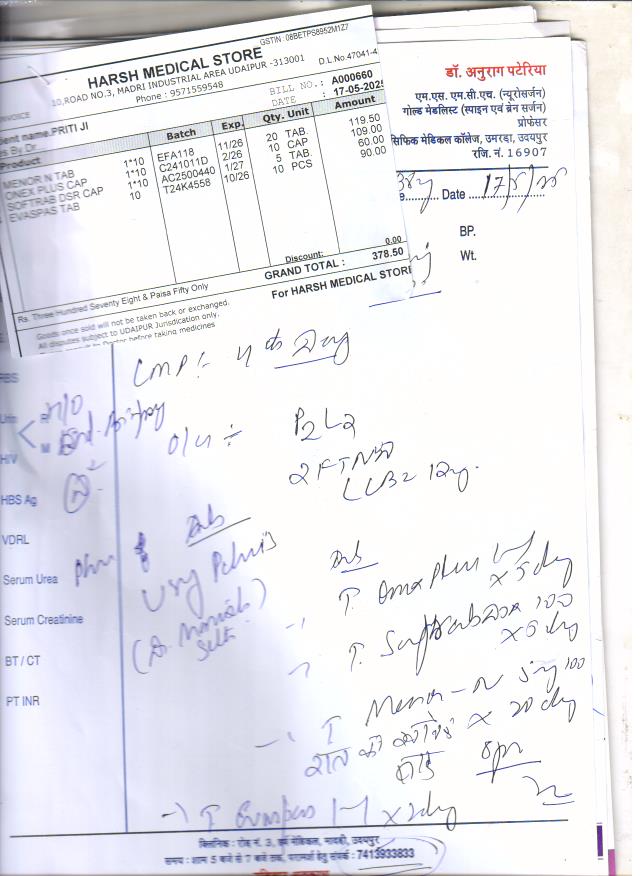 GSTIN : 08BETPS8952M1Z7
HARSH MEDICAL STORE
10,ROAD NO.3, MADRI INDUSTRIAL AREA UDAIPUR -313001
Phone : 9571559548
D.L.No.47041-4
INVOICE
BILL NO.: A000660
DATE : 17-05-2025
ent name.PRITI JI
s By Dr.
Product Batch Exp. Qty. Unit Amount
MENOR N TAB 1*10 EFA118 11/26 20 TAB. 119.50
ONEX PLUS CAP 1*10 C241011D 2/26 10 CAP 109.00
SOFTRAB DSR CAP 1*10 AC2500440 1/27 5 TAB. 60.00
EVASPAS TAB 10 T24K4558 10/26 10 PCS 90.00
Discount: 0.00
GRAND TOTAL : 378.50
Rs. Three Hundred Seventy Eight & Paisa Fifty Only
For HARSH MEDICAL STORE
Goods once sold will not be taken back or exchanged.
All disputes subject to UDAIPUR Jurisdication only.
Doctor before taking medicines
डॉ. अनुराग पटेरिया
एम.एस. एम.सी.एच. (न्यूरोसर्जन)
गोल्ड मेडलिस्ट (स्पाइन एवं ब्रेन सर्जन)
प्रोफेसर
सिफिक मेडिकल कॉलेज, उमरडा, उदयपुर
रजि. नं. 16907
Date 17/5/25
BP.
Wt.
RBS
Urin R
M
HIV
HBS Ag
VDRL
Serum Urea
Serum Creatinine
BT / CT
PT INR
LMP :- 4th Day
O/H ÷ P2L2
2 FTND
LCB = 12y.
Adv
USG Pelvis
Adv
T. Onex Plus 1-1 x 5 day
T. Softrab DSR 100 x 5 day
T Menor-N 5mg 100
x 20 day
रात को
8pm
T Evaspas 1-1 x 2 day
क्लिनिक : रोड नं. 3, हर्ष मेडिकल, मादड़ी, उदयपुर
समय : शाम 5 बजे से 7 बजे तक, परामर्श हेतु संपर्क : 7413933833